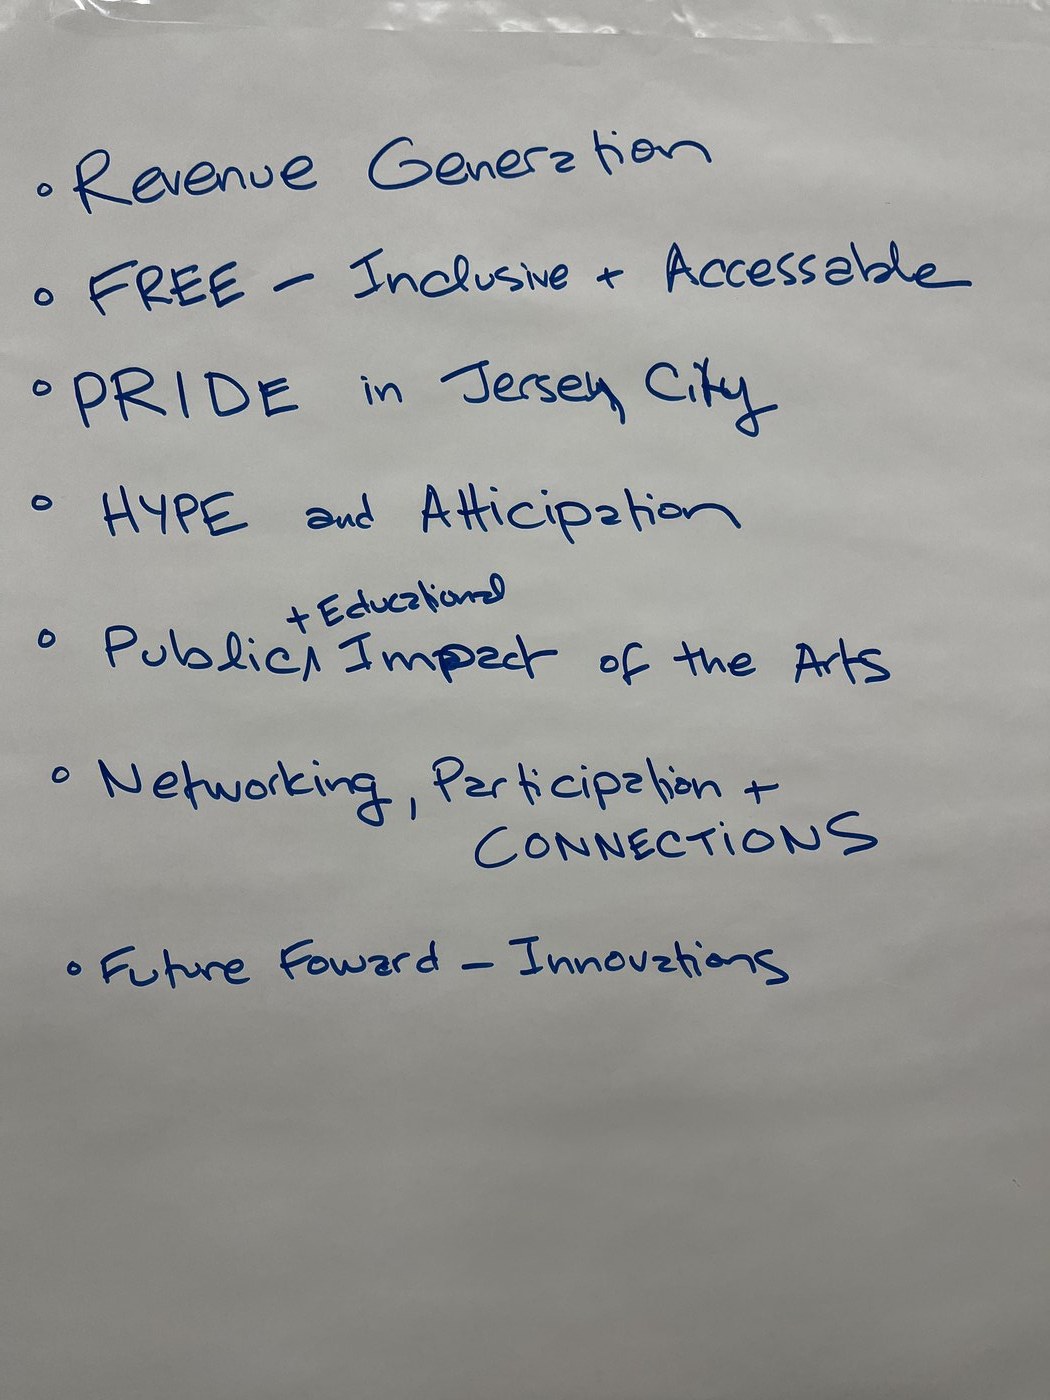 • Revenue Generation
• FREE – Inclusive + Accessable
• PRIDE in Jersey City
• HYPE and Atticipation
+ Educational
• Public ^ Impact of the Arts
• Networking, Participation +
CONNECTIONS
• Future Foward – Innovations